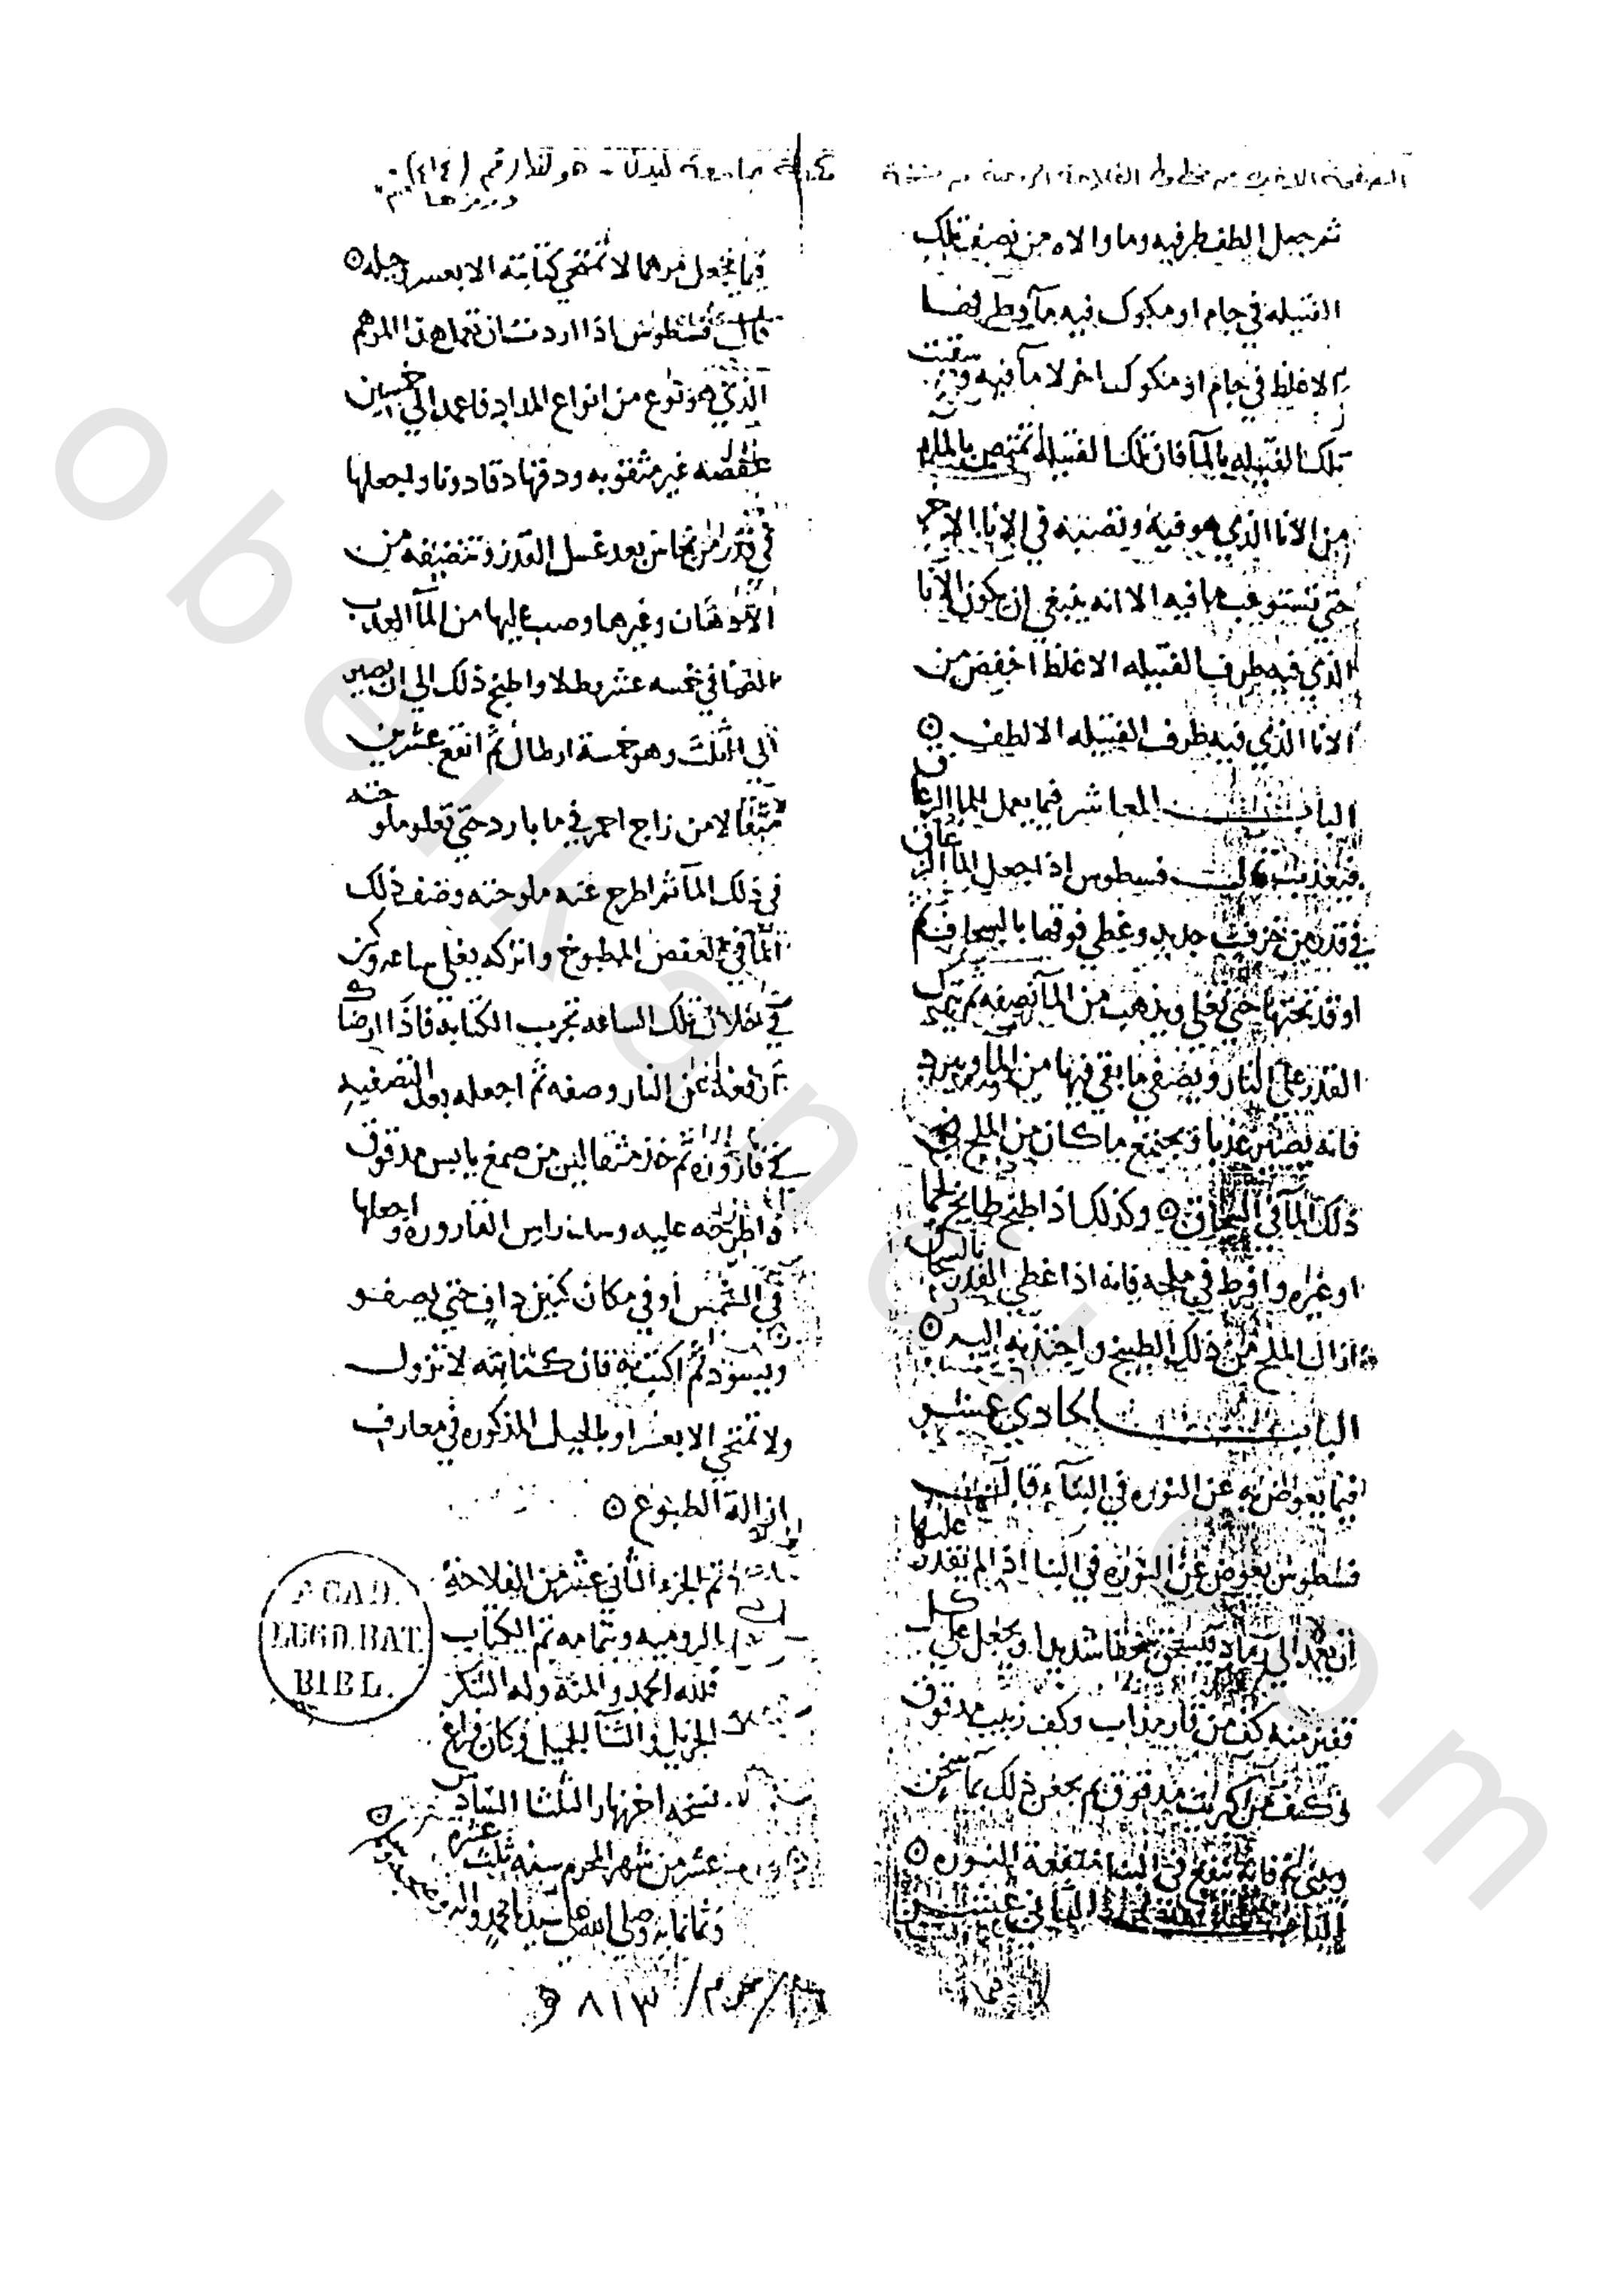 الصفحة الاخيرة من مخطوط الفلاحة الرومية من نسخة مكتبة جامعة ليدن - هولندا رقم (٤١٤)
ورمزها "م"
ثم جعل الطف طرفيه وما والاه من نصف تلك
الفتيله في جام او مكوك فيه مآ وطرفها
الاغلظ في جام او مكوك اخر لا مآ فيه وقد سقيت
تلك الفتيله بالمآ فان تلك الفتيله تمتص بالمآ
من الانا الذي هو فيه وتصبه في الانا الاخر
حتي تستوعب ما فيه الا انه ينبغي ان يكون الانا
الذي فيه طرف الفتيله الاغلظ اخفض من
الانا الذي فيه طرف الفتيله الالطف ⊙
الباب العاشر فيما يعمل للما الزعاق
فيعذب قالـــ قسطوس اذا جعل الما الزعاق
في قدر من خزف جديد وغطي فوقها بالسحاف ثم
اوقد تحتها حتي تغلي ويذهب من المآ نصفه ثم تترك
القدر علي النار ويصفي ما بقي فيها من المآ ويبرد
فانه يصير عذبا ويجتمع ما كان من الملح في
ذلك المآ في السحاف ⊙ وكذلك اذا طبخ طابخ لحما
او غيره وافرط في ملحه فانه اذا غطي القدر بالسحاف
ازال الملح من ذلك الطبيخ واجتذبه اليه ⊙
الباب الحادي عشر
فيما يعوض به عن النوره في البنآء قالــ
قسطوس يعوض عن النوره في البنا اذا لم يقدر عليها
ان يعمد الي رماد فيسحق سحقا شديدا ويجعل علي كل
قفيز منه كف من قار مذاب وكف زبيب مدقوق
وكف من كبريت مدقوق ثم يعجن ذلك بمآ سخن
ويبني به فانه ينفع في البنا منفعة النوره ⊙
الباب الثاني عشر
فيما
فيما يجعل مرهما لا تمتحي كتابته الا بعسر وحيله ⊙
قالــ قسطوس اذا اردت ان تعمل هذا المرهم
الذي هو نوع من انواع المداد فاعمد الي خمسين
عفصه غير مثقوبه ودقها دقا دونا واجعلها
في قدر من نحاس بعد غسل القدر وتنضيفه من
الادهان وغيرها وصب عليها من المآ العذب
الصافي خمسه عشر رطلا واطبخ ذلك الي ان يصير
الي الثلث وهو خمسة ارطال ثم انقع عشرين
مثقالا من زاج احمر في ما بارد حتي تعلو ملوحته
في ذلك المآ ثم اطرح عنه ملوحته وضف ذلك
المآ في العفص المطبوخ واتركه يغلي ساعه وكن
في خلال تلك الساعه تجرب الكتابه فاذا ارضاك
فارفعه عن النار وصفه ثم اجعله بعد التصفيه
في قاروره ثم خذ مثقالين من صمغ يابس مدقوق
واطرحه عليه وسد راس القاروره واجعلها
في الشمس او في مكان كنين داف حتي يصفو
ويسود ثم اكتب به فان كتابته لا تزول
ولا تمتحي الا بعسر او بالحيل المذكوره في معارف
ازالة الطبوع ⊙
تم الجزء الثاني عشر من الفلاحة
الروميه وبتمامه تم الكتاب
فلله الحمد والمنة وله الشكر
الجزيل والثنآ الجميل وكان فراغ
نسخه اخر نهار الثلثا السادس
عشر من شهر المحرم سنه ثلث عشره
وثمانمايه وصلي الله علي سيدنا محمد واله وصحبه وسلم ⊙
١٦/محرم/٨١٣ هـ
ACAD.
LUGD.BAT.
BIBL.
obeikandl.com